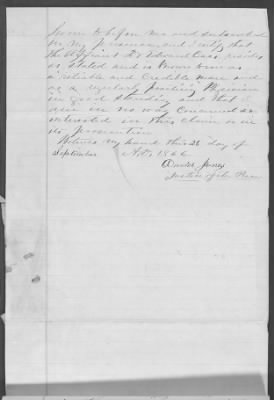 Sworn to before me and subscribed
in my presence and I certify that
the affiant F. Edwards resides
as stated and is known to me as
a reliable and credible man and
as a regularly practicing Physician
in good standing and that I
am in no way concerned or
interested in this claim or in
its prosecution
Witness my hand this 26 day of
September A.D. 1866
David Jones
Justice of the Peace